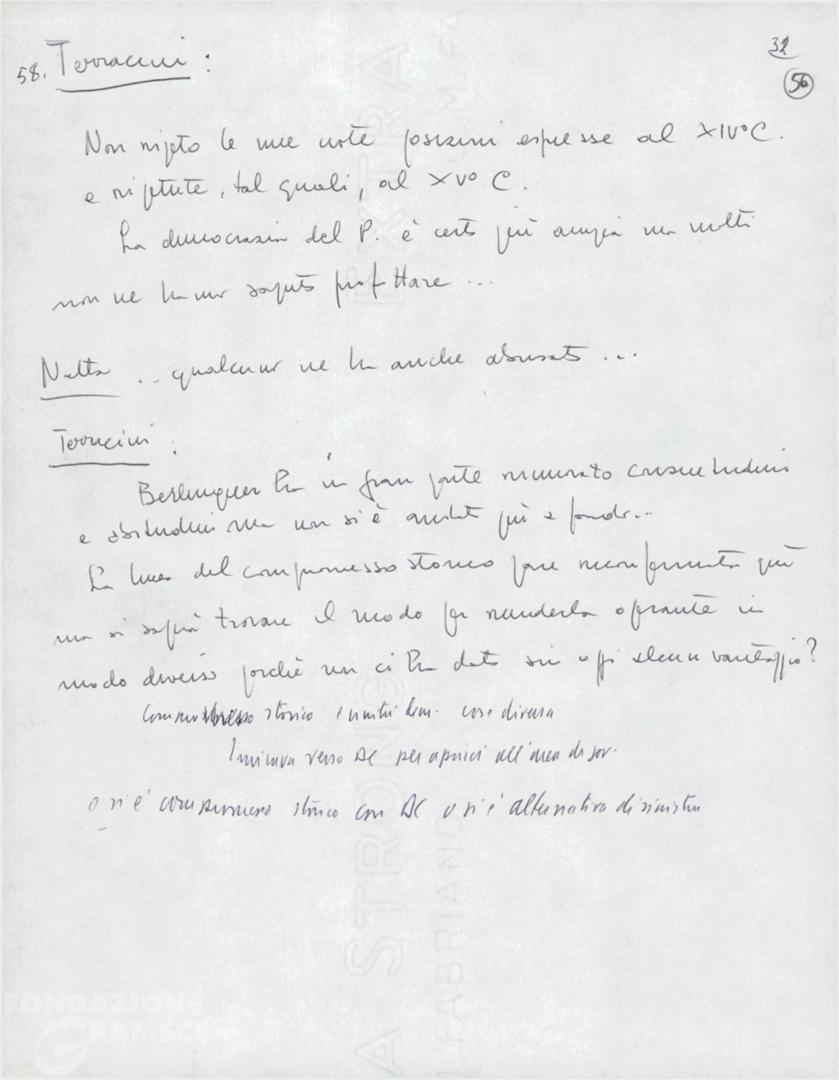 32
58. Terracini :
56
Non ripeto le mie note posizioni espresse al XIV° C.
e ripetute, tal quali, al XV° C.
La democrazia del P. è certo più ampia ma molti
non ne hanno saputo profittare ...
Natta ... qualcuno ne ha anche abusato ...
Terracini :
Berlinguer ha in gran parte rinnovato consuetudini
e abitudini ma non si è andati più a fondo...
La linea del compromesso storico pare riconfermata qui
ma si saprà trovare il modo per renderla operante in
modo diverso perché non ci ha dato sin oggi alcun vantaggio?
Compromesso storico e unità dem. cosa diversa
verso DC per aprirci all'area di gov.
o si è compromesso storico con DC o si è alternativa di sinistra
A STRONG EXTRA
FABRIANO
FONDAZIONE
GRAMSCI